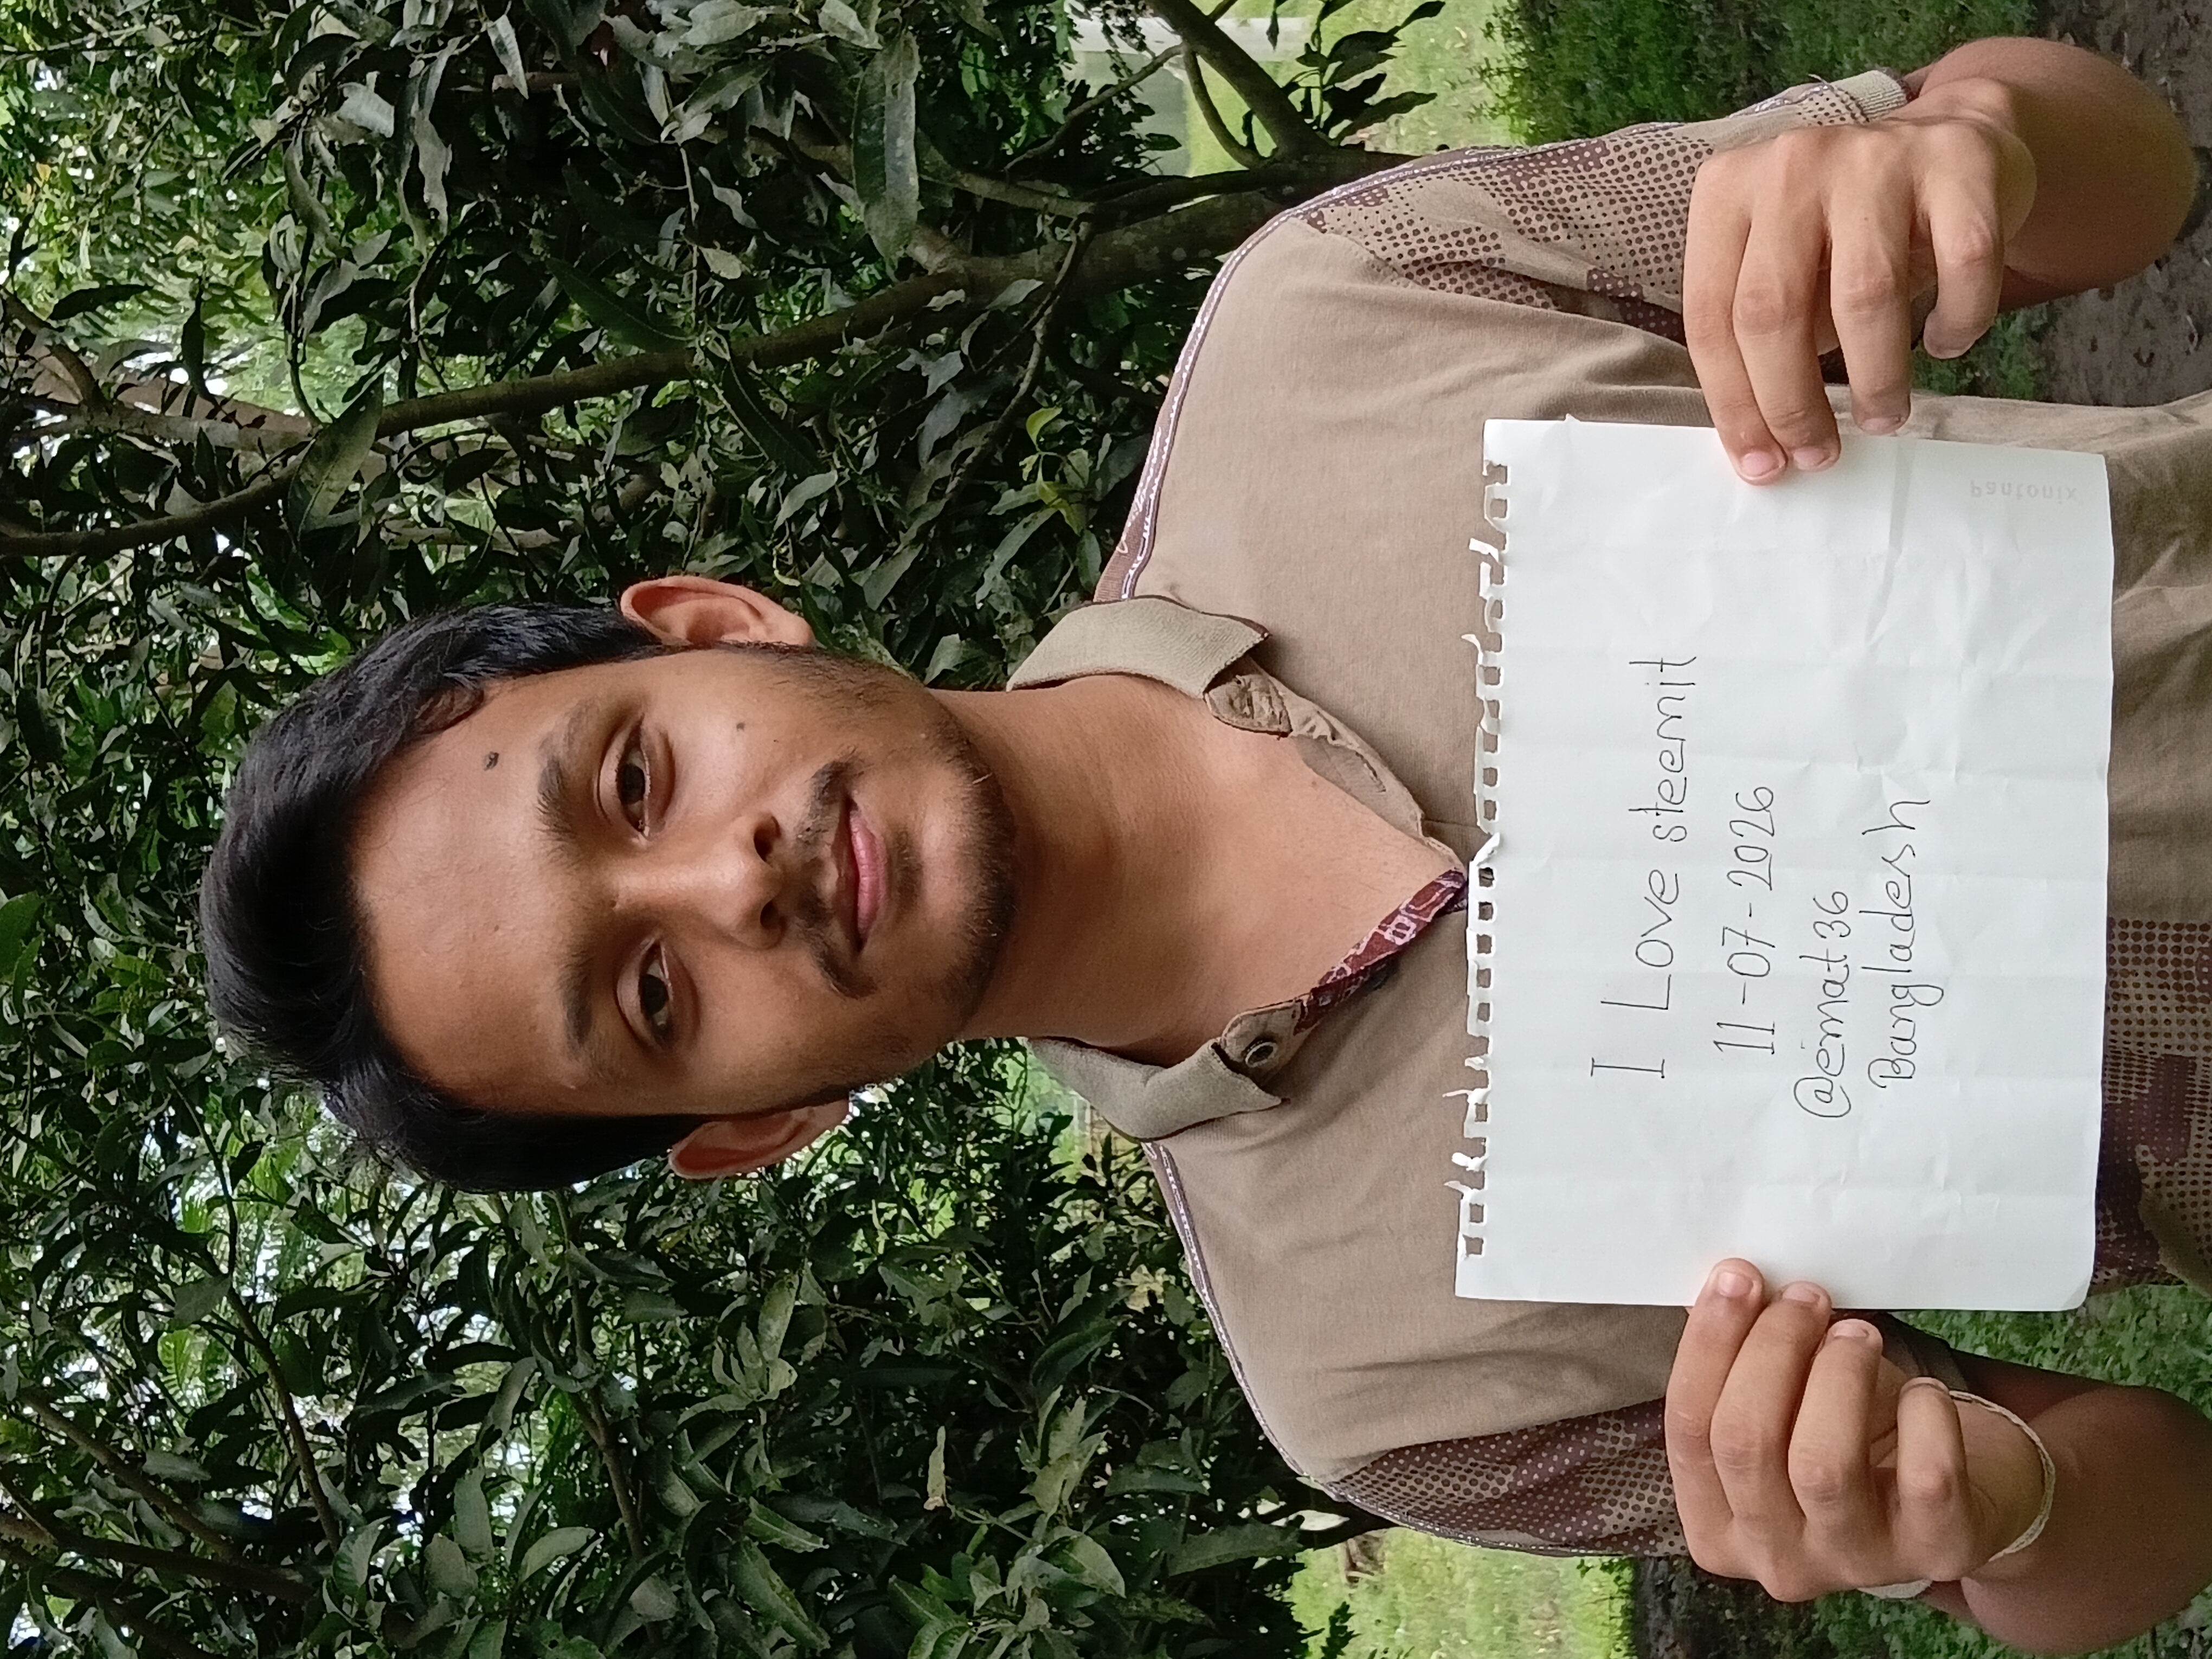 I Love steemit
11-07-2026
@emat36
Bangladesh
Pantonix